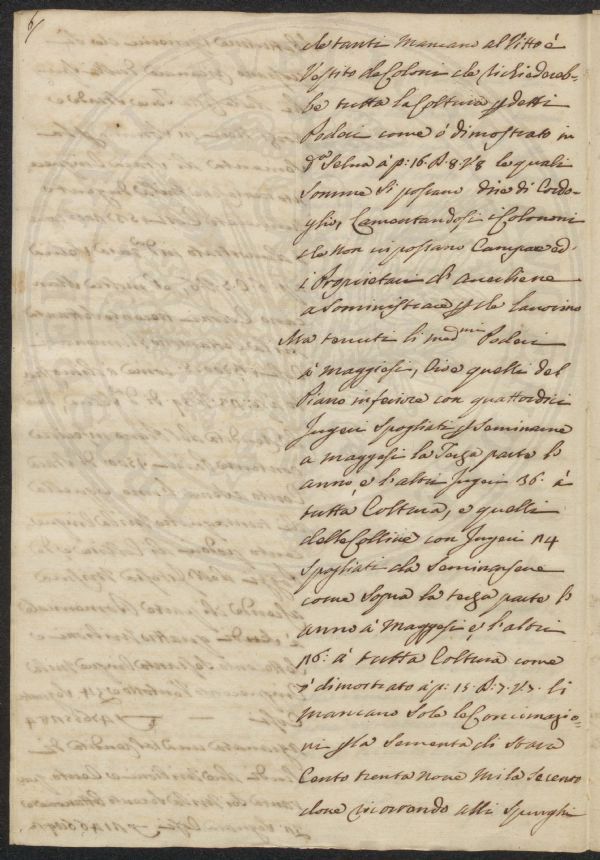 6
che tanti mancano al Vitto è
Vestito de Coloni che richiedereb=
be tutta la Coltura p detti
Poderi come è dimostrato in
à p: 16. le quali
Somme si possano dire di Cordo=
glio, Lamentandosi i Cononi
che non vi possano Campare ed
i Proprietari di
a Somministrare p che lavorino
Ma tenuti li med.mi Poderi
à Maggiesi, Cioè quelli del
Piano inferiore con quattordici
Jugeri Spogliati p Seminarne
a maggesi la Terza parte l'
anno e l'altri Jugeri 36. à
tutta Coltura, e quelli
delle Colline con Jugeri 114
Spogliati da Seminarsene
come Sopra la terza parte l'
anno à Maggesi e l'altri
116. à tutta Coltura come
è dimostrato à p: 15. li
mancano Solo le Concimazio=
ni p la Sementa di
Cento trenta nove mila Secento
done ricorrendo alli Spurghi